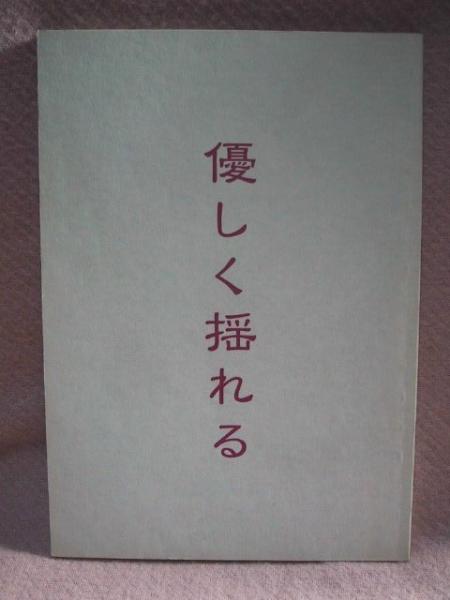 優しく揺れる